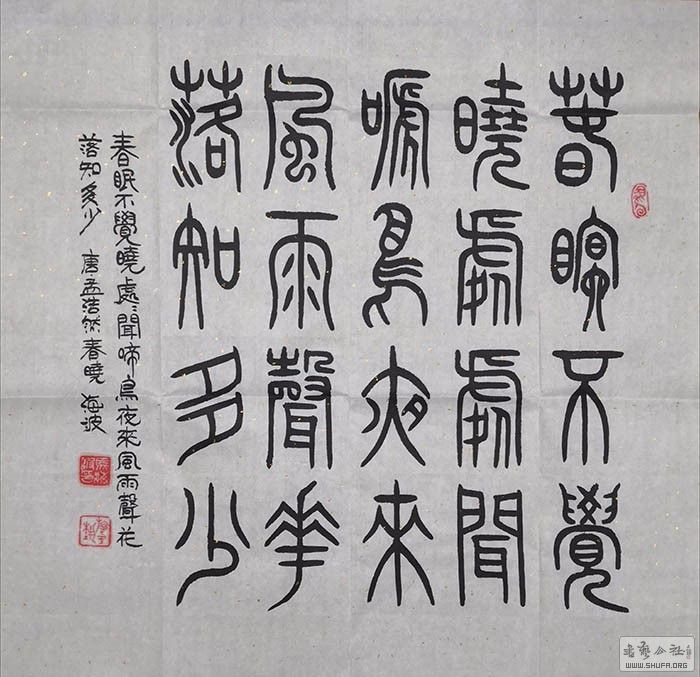 春瞑不覺
曉處處聞
嗁鳥夜來
風雨聲華
落知多少
春眠不覺曉處〻聞啼鳥夜來風雨聲花
落知多少 唐孟浩然春曉 海波
WWW.SHUFA.ORG